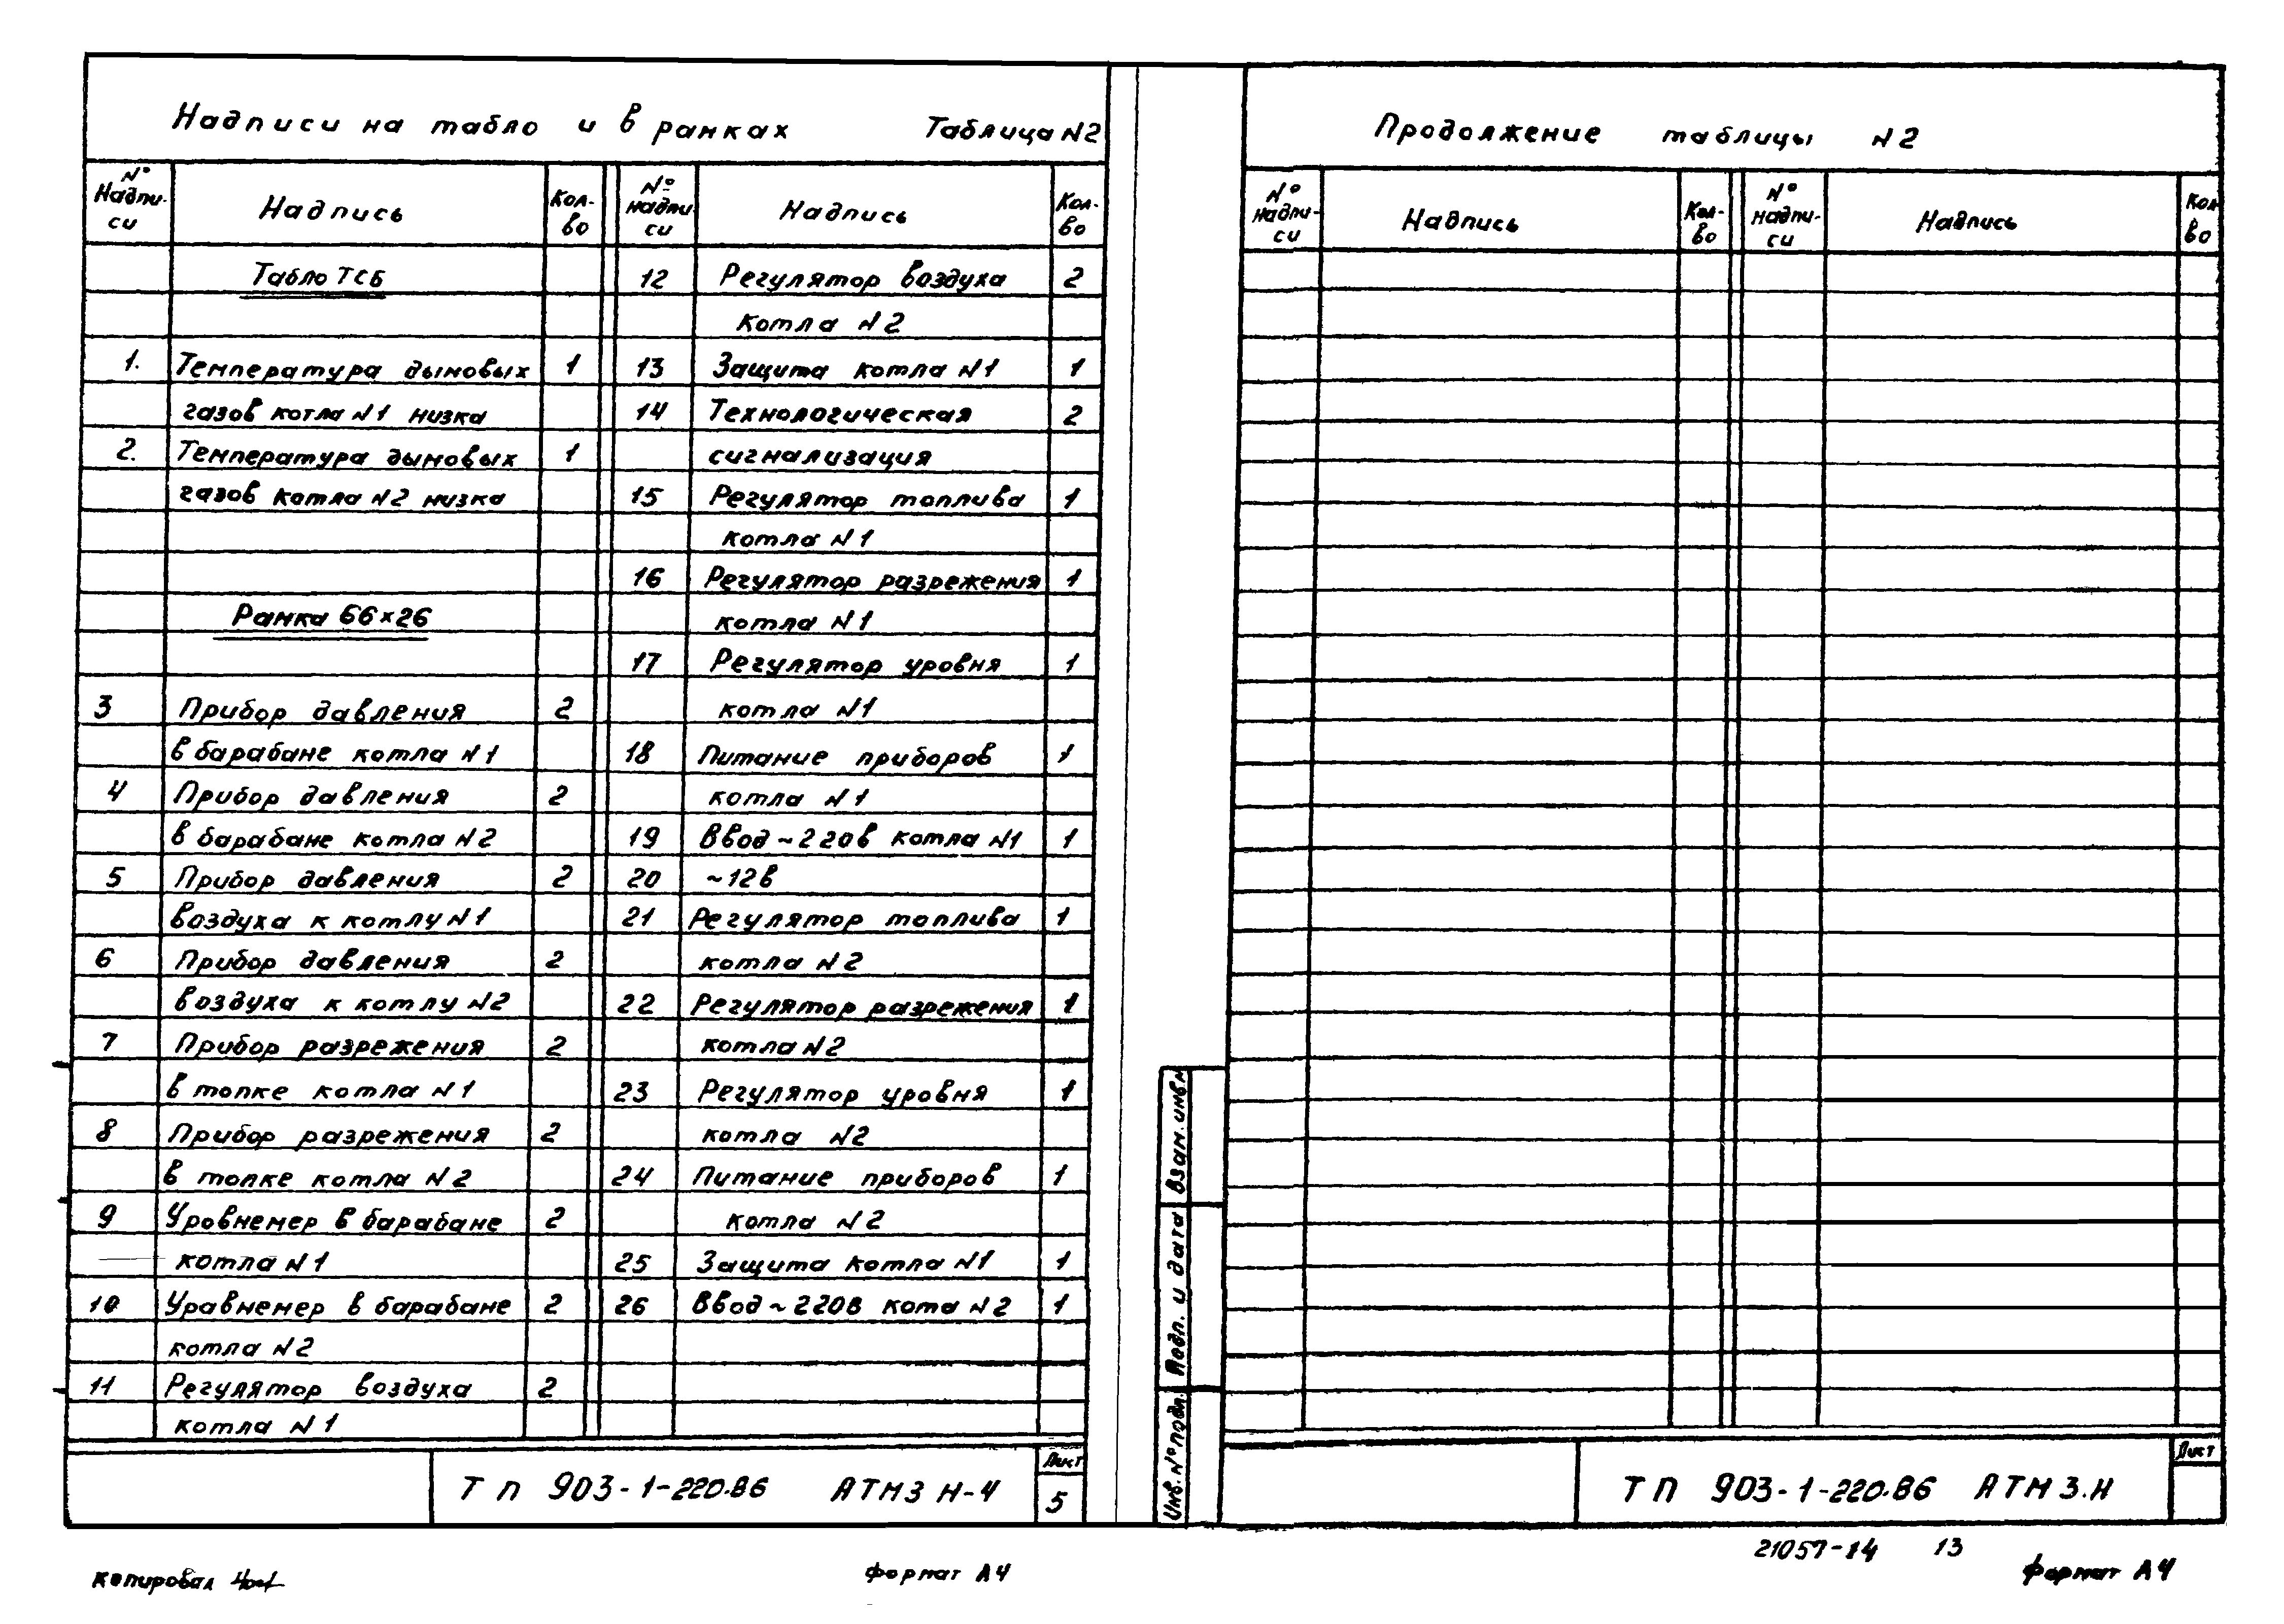 Надписи на табло и в рамках Таблица N2
N° Надпи-си Надпись Кол-во N° надпи-си Надпись Кол-во
Табло ТСБ
1. Температура дымовых 1
газов котла N1 низка
2. Температура дымовых 1
газов котла N2 низка
Рамка 66×26
3 Прибор давления 2
в барабане котла N1
4 Прибор давления 2
в барабане котла N2
5 Прибор давления 2
воздуха к котлу N1
6 Прибор давления 2
воздуха к котлу N2
7 Прибор разрежения 2
в топке котла N1
8 Прибор разрежения 2
в топке котла N2
9 Уровнемер в барабане 2
котла N1
10 Уравнемер в барабане 2
котла N2
11 Регулятор воздуха 2
котла N1
12 Регулятор воздуха 2
котла N2
13 Защита котла N1 1
14 Технологическая 2
сигнализация
15 Регулятор топлива 1
котла N1
16 Регулятор разрежения 1
котла N1
17 Регулятор уровня 1
котла N1
18 Питание приборов 1
котла N1
19 Ввод ~220в котла N1 1
20 ~12в
21 Регулятор топлива 1
котла N2
22 Регулятор разрежения 1
котла N2
23 Регулятор уровня 1
котла N2
24 Питание приборов 1
котла N2
25 Защита котла N1 1
26 Ввод ~220в кота N2 1
ТП 903-1-220.86 АТМ3 Н-4
Лист
5
Копировал
Формат А4
Продолжение таблицы N2
N° надпи-си Надпись Кол-во N° надпи-си Надпись Кол во
Взам. инв N
Подп. и дата
Инв. N° подл.
ТП 903-1-220.86 АТМ3.Н
Лист
21057-14 13
Формат А4